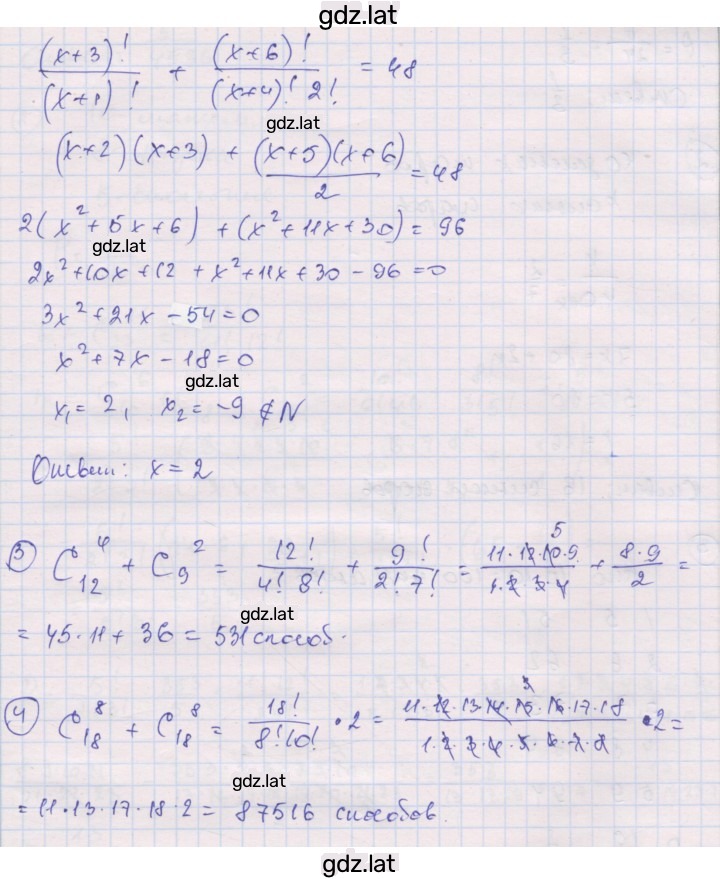 gdz.lat
(x+3)! / (x+1)! + (x+6)! / (x+4)! 2! = 48
gdz.lat
(x+2)(x+3) + (x+5)(x+6) / 2 = 48
2(x²+5x+6) + (x²+11x+30) = 96
gdz.lat
2x²+10x+12 + x²+11x+30 - 96 = 0
3x²+21x - 54 = 0
x²+7x - 18 = 0
gdz.lat
x₁ = 2, x₂ = -9 ∉ N
Ответ: x = 2
③ C₁₂⁴ + C₉² = 12! / 4! 8! + 9! / 2! 7! = 11·12·10·9 / 1·2·3·4 + 8·9 / 2 =
5
gdz.lat
= 45·11 + 36 = 531 способ.
④ C₁₈⁸ + C₁₈⁸ = 18! / 8! 10! · 2 = 11·12·13·14·15·16·17·18 / 1·2·3·4·5·6·7·8 · 2 =
3
gdz.lat
= 11·13·17·18·2 = 87516 способов.
gdz.lat